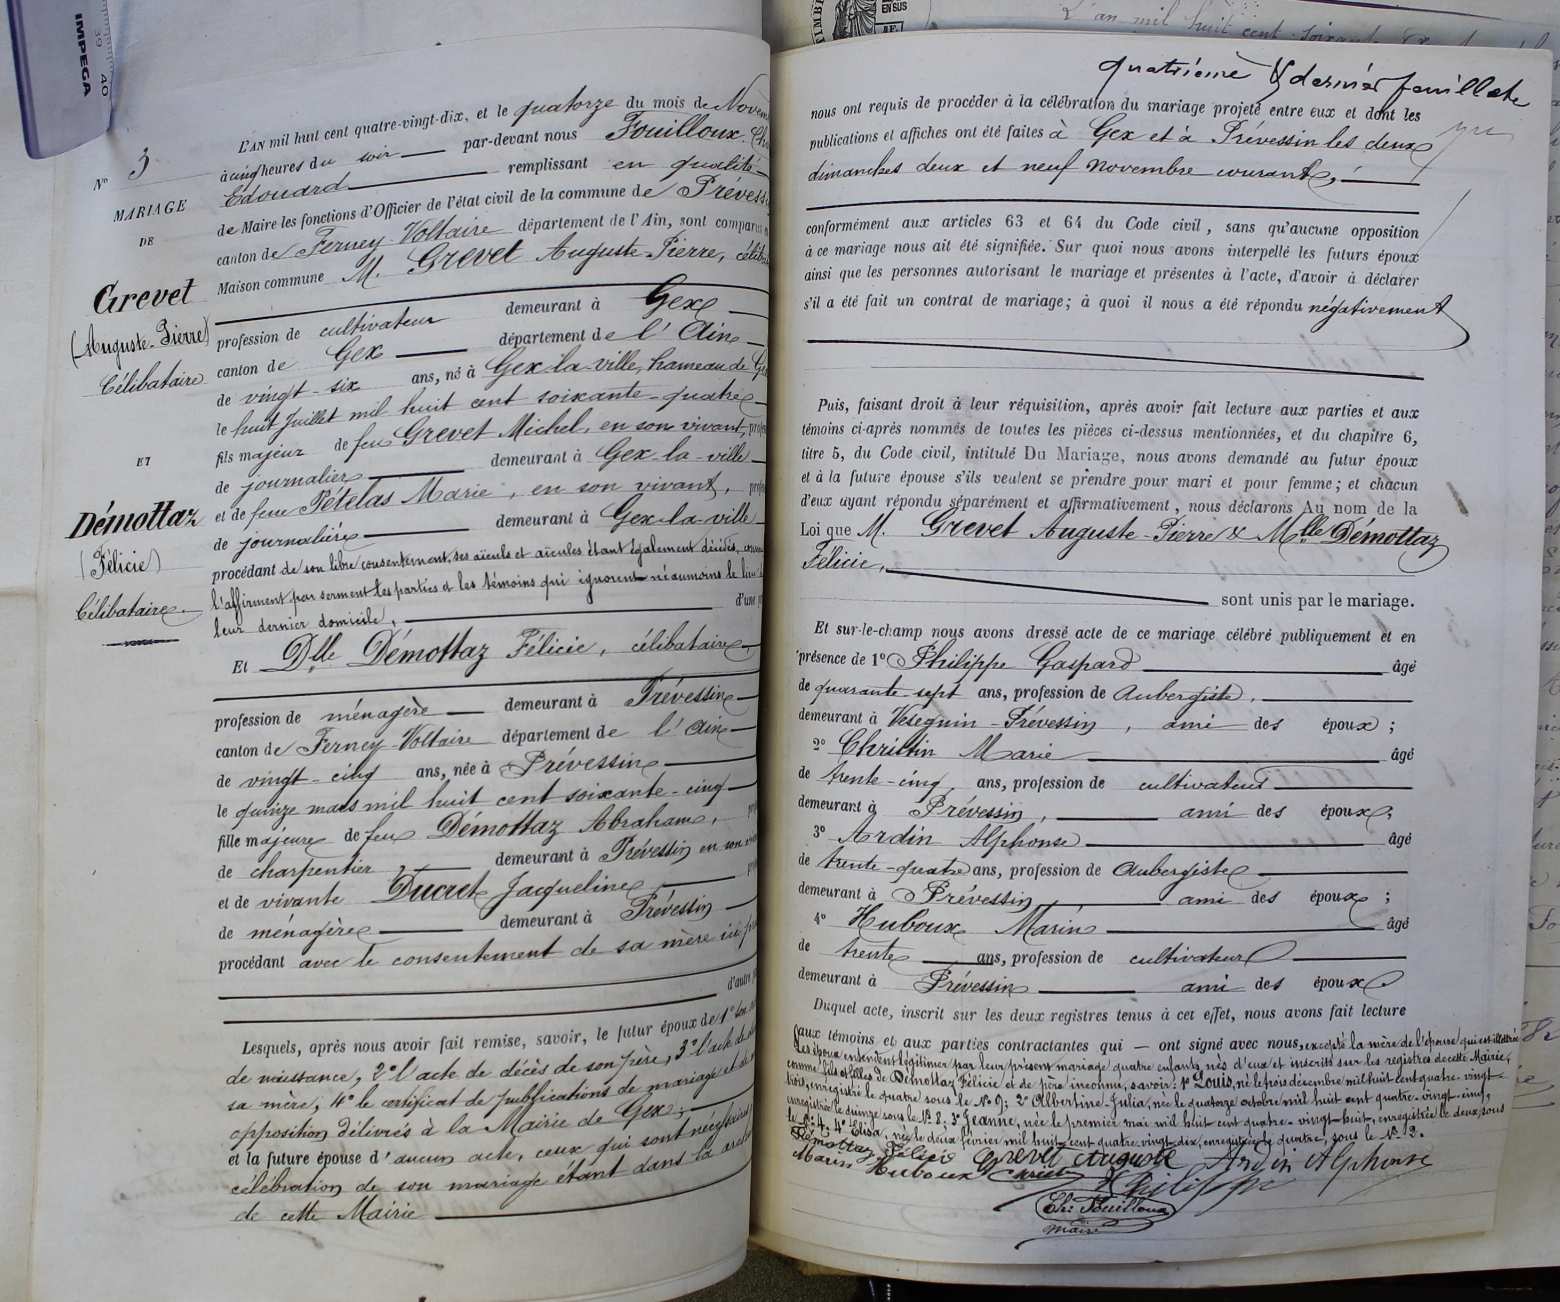 IMPEGA
39 40
L'an mil huit cent soixante
EN SUS
N° 3
MARIAGE
DE
Grevet
(Auguste-Pierre)
Célibataire
ET
Démottaz
(Félicie)
Célibataire.
L'AN mil huit cent quatre-vingt-dix, et le quatorze du mois de Novem
à cinq heures du soir par-devant nous Fouilloux Ch
Edouard remplissant en qualité
de Maire les fonctions d'Officier de l'état civil de la commune de Prévess
canton de Ferney-Voltaire département de l'Ain, sont comparus
Maison commune M. Grevet Auguste-Pierre, céliba
profession de cultivateur demeurant à Gex
canton de Gex département de l'Ain
de vingt-six ans, né à Gex-la-ville, hameau de Ge
le huit Juillet mil huit cent soixante-quatre
fils majeur de feu Grevet Michel, en son vivant, profes
de journalier demeurant à Gex-la-ville
et de feue Pételas Marie, en son vivant, profe
de journalière demeurant à Gex-la-ville
procédant de son libre consentement, ses aïeuls et aïeules étant également décédés, comme
l'affirment par serment les parties et les témoins qui ignorent néaumoins le lieu d
leur dernier domicile, d'une p
Et Dlle Démottaz Félicie, célibataire
profession de ménagère demeurant à Prévessin
canton de Ferney-Voltaire département de l'Ain
de vingt-cinq ans, née à Prévessin
le quinze mars mil huit cent soixante-cinq
fille majeure de feu Démottaz Abraham, pro
de charpentier demeurant à Prévessin en son viv
et de vivante Ducret Jacqueline,
de ménagère demeurant à Prévessin
procédant avec le consentement de sa mère ici pré
d'autre pa
Lesquels, après nous avoir fait remise, savoir, le futur époux de 1° son
de naissance, 2° l'acte de décès de son père, 3° l'acte de
sa mère, 4° le certificat de publications de mariage et de
opposition délivrés à la Mairie de Gex,
et la future épouse d'aucun acte, ceux qui sont nécessaires
célébration de son mariage étant dans la arch
de cette Mairie
quatrième & dernier feuillet
nous ont requis de procéder à la célébration du mariage projeté entre eux et dont les
publications et affiches ont été faites à Gex et à Prévessin les deux
dimanches deux et neuf novembre courant,
conformément aux articles 63 et 64 du Code civil, sans qu'aucune opposition
à ce mariage nous ait été signifiée. Sur quoi nous avons interpellé les futurs époux
ainsi que les personnes autorisant le mariage et présentes à l'acte, d'avoir à déclarer
s'il a été fait un contrat de mariage; à quoi il nous a été répondu négativement
Puis, faisant droit à leur réquisition, après avoir fait lecture aux parties et aux
témoins ci-après nommés de toutes les pièces ci-dessus mentionnées, et du chapitre 6,
titre 5, du Code civil, intitulé Du Mariage, nous avons demandé au futur époux
et à la future épouse s'ils veulent se prendre pour mari et pour femme; et chacun
d'eux ayant répondu séparément et affirmativement, nous déclarons Au nom de la
Loi que M. Grevet Auguste-Pierre & Mlle Démottaz
Félicie,
sont unis par le mariage.
Et sur-le-champ nous avons dressé acte de ce mariage célébré publiquement et en
présence de 1° Philippe Gaspard âgé
de quarante-sept ans, profession de Aubergiste,
demeurant à Vesegnin-Prévessin, ami des époux;
2° Christin Marie âgé
de trente-cinq ans, profession de cultivateur
demeurant à Prévessin, ami des époux;
3° Ardin Alphonse âgé
de trente-quatre ans, profession de Aubergiste
demeurant à Prévessin ami des époux;
4° Huboux Marin âgé
de trente ans, profession de cultivateur
demeurant à Prévessin ami des époux
Duquel acte, inscrit sur les deux registres tenus à cet effet, nous avons fait lecture
aux témoins et aux parties contractantes qui — ont signé avec nous, excepté la mère de l'épouse qui est illettrée
Les époux entendent légitimer par leur présent mariage quatre enfants, nés d'eux et inscrits sur les registres de cette Mairie,
comme fils et filles de Démottaz Félicie et de père inconnu, savoir: 1° Louis, né le trois décembre mil huit cent quatre-vingt-
trois, enregistré le quatre sous le N° 9; 2° Albertine-Julia, née le quatorze octobre mil huit cent quatre-vingt-cinq,
enregistrée le quinze sous le N° 8; 3° Jeanne, née le premier mai mil huit cent quatre-vingt-huit, enregistrée le deux, sous
le N° 4; 4° Elisa, née le deux février mil huit cent quatre-vingt-dix, enregistrée le quatre, sous le N° 2.
Démottaz Félicie Grevet Auguste Ardin Alphonse
Marin Huboux Christin Philippe
Ch: Fouilloux
maire